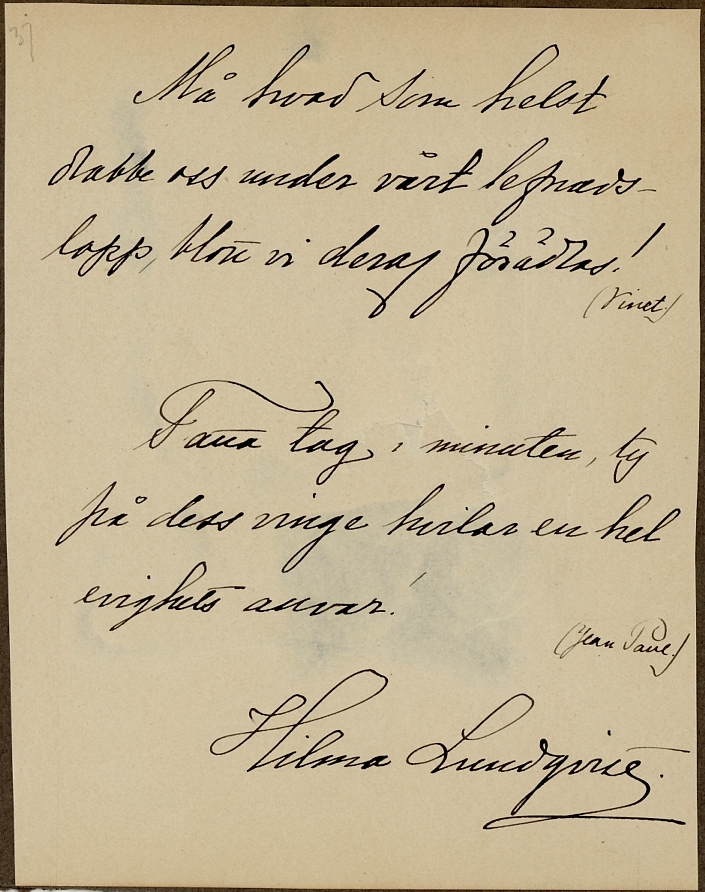 37
Må hvad som helst
drabbe oss under vårt lefnads-
lopp, blott vi deraf förädlas!
(Vinet.)
Fatta tag i minuten, ty
på dess vinge hvilar en hel
evighets ansvar!
(Jean Paul.)
Hilma Lundqvist.